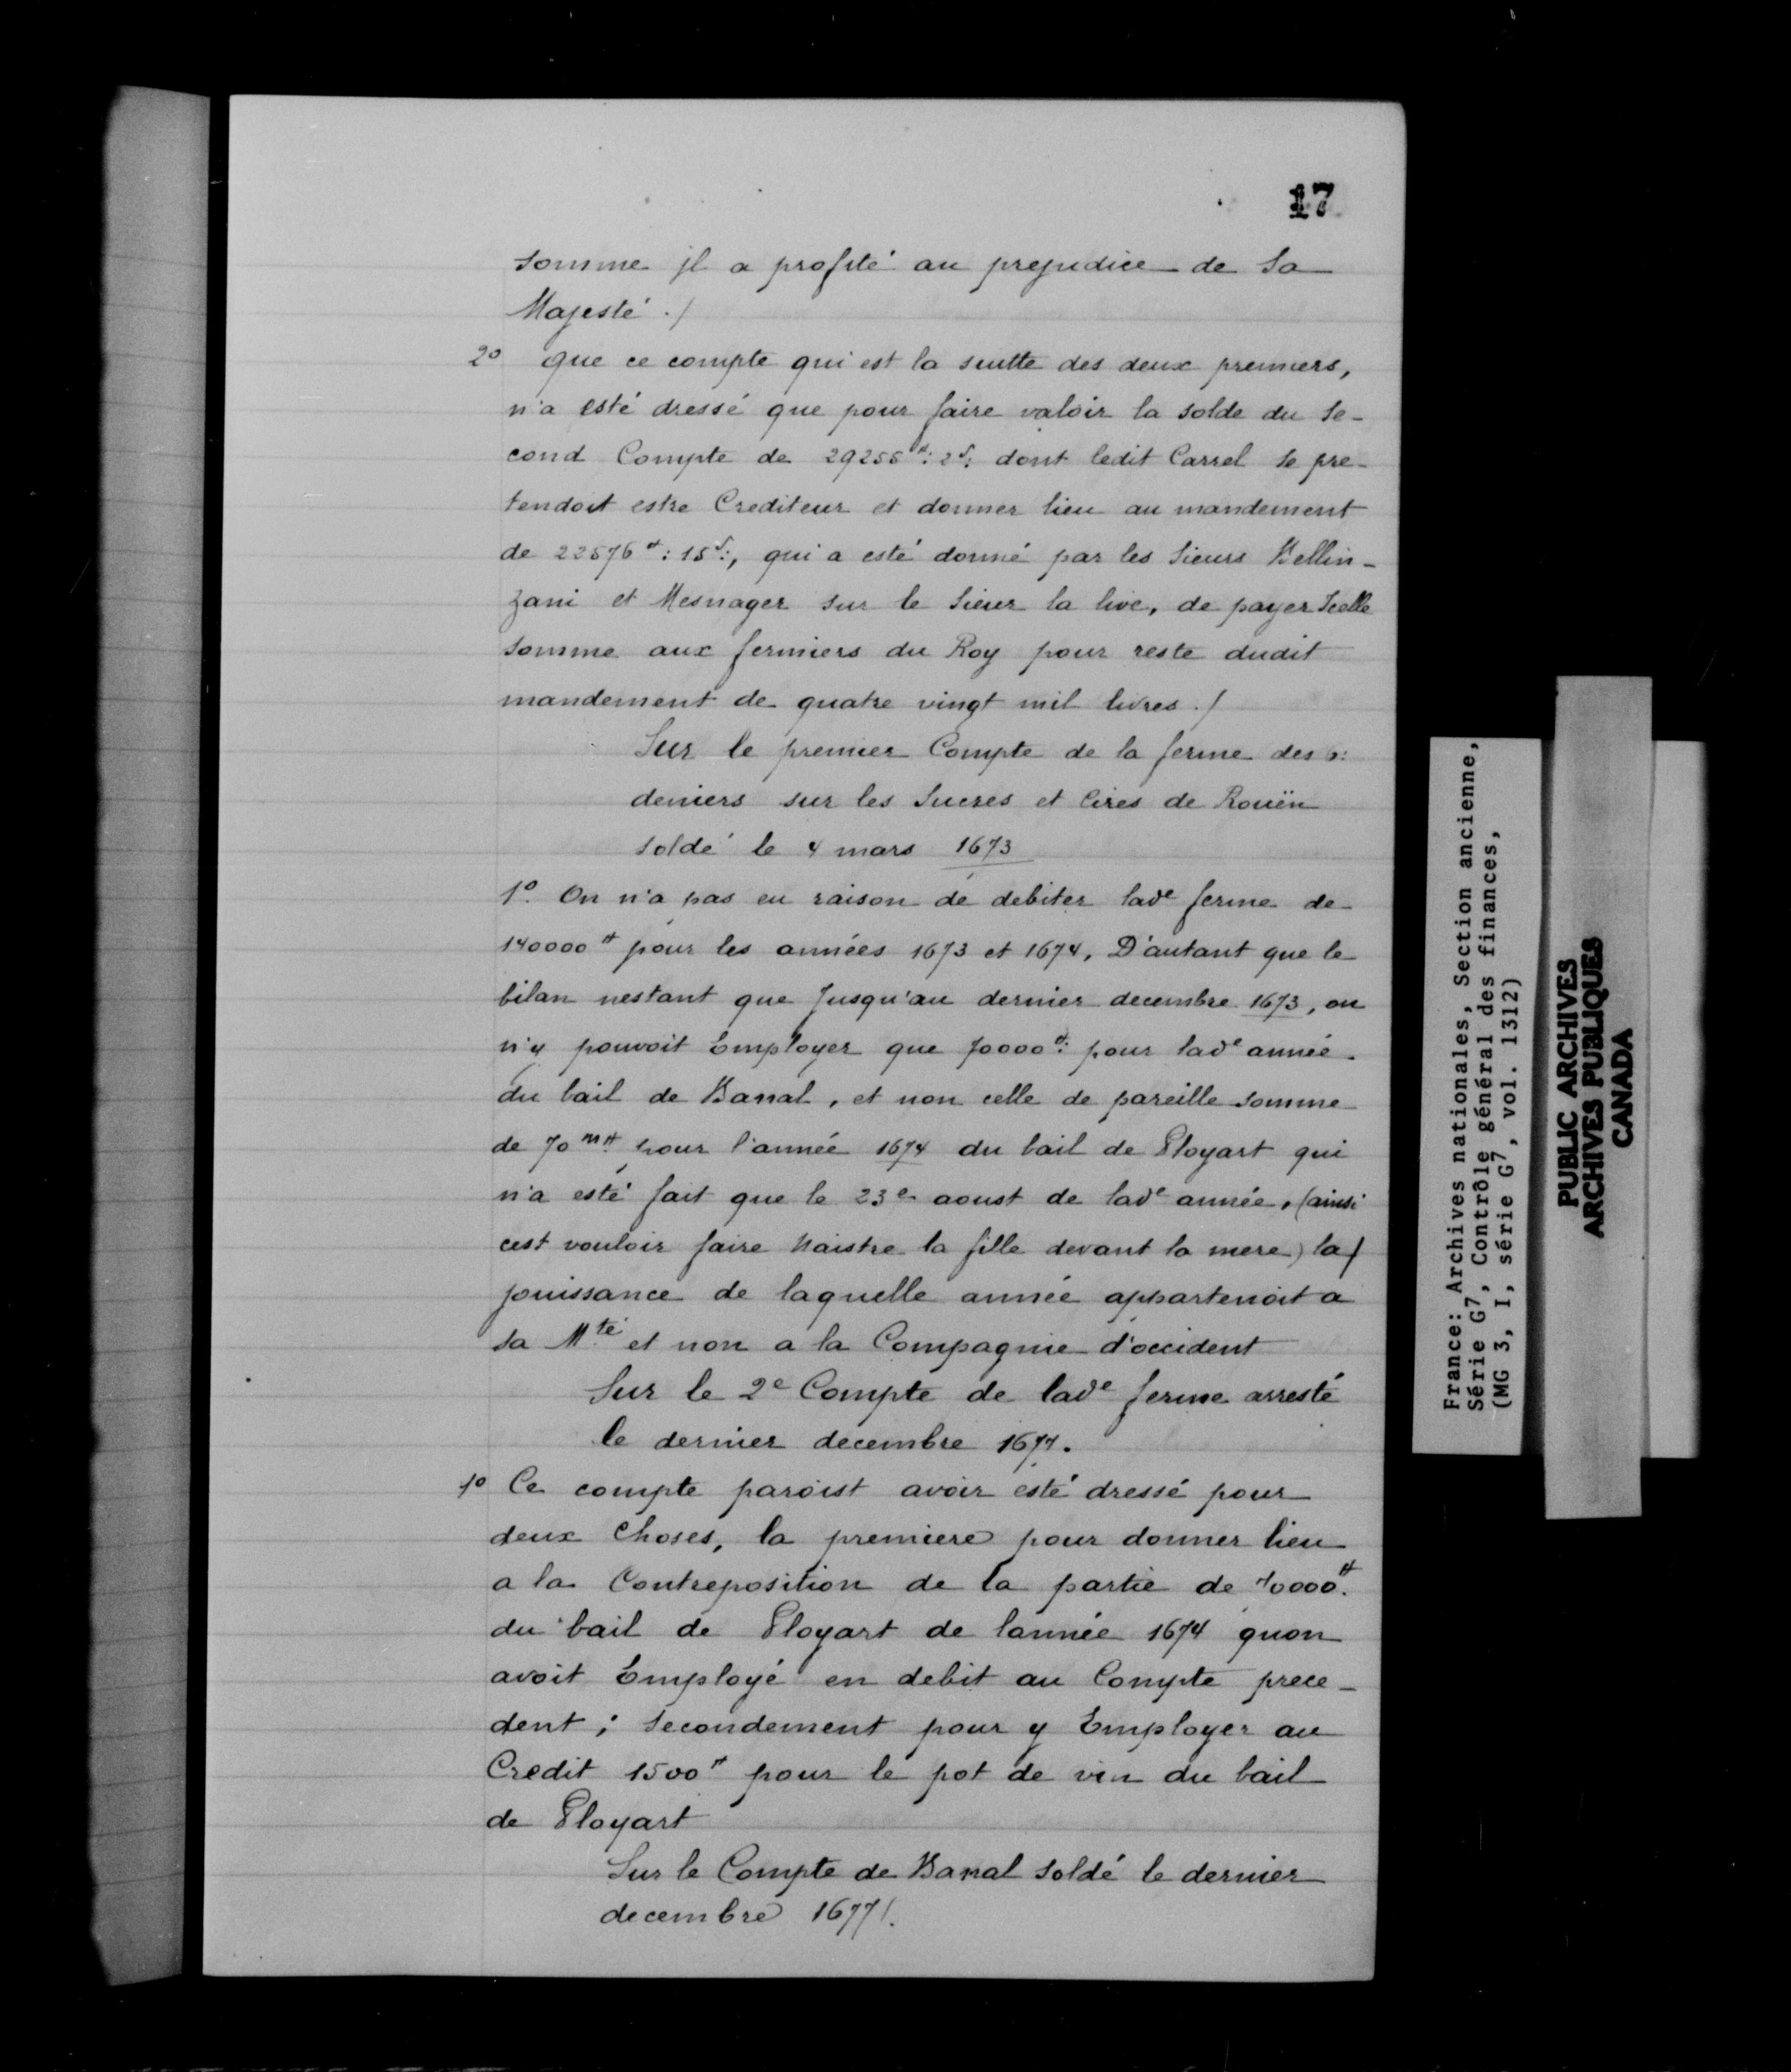 17
somme jl a profité au prejudice de Sa
Majesté ./
2º que ce compte qui est la suitte des deux premiers,
n'a esté dressé que pour faire valoir la solde du Se-
cond Compte de 29255 ᵗᵗ: 2ˢ: dont ledit Carrel se pre-
tendoit estre Crediteur et donner lieu au mandement
de 22576 ᵗᵗ: 15ˢ:, qui a esté donné par les Sieurs Bellin-
zani et Mesnager sur le Sieur la live, de payer Icelle
somme aux fermiers du Roy pour reste dudit
mandement de quatre vingt mil livres ./
Sur le premier Compte de la ferme des 6:
deniers sur les Sucres et Cires de Rouën
soldé le 4 mars 1673
1º. On n'a pas eu raison de debiter ladᵉ ferme de
140000 ᵗᵗ pour les années 1673 et 1674, D'autant que le
bilan nestant que Jusqu'au dernier decembre 1673, on
n'y pouvoit Employer que 70000 ᵗᵗ: pour ladᵉ année
du bail de Banal, et non celle de pareille somme
de 70 ᵐ ᵗᵗ. pour l'année 1674 du bail de Ployart qui
n'a esté fait que le 23ᵉ aoust de ladᵉ année, (ainsi
cest vouloir faire Naistre la fille devant la mere) la/
jouissance de laquelle année appartenoit a
sa Mᵗᵉ́ et non a la Compagnie d'occident
Sur le 2ᵉ Compte de ladᵉ ferme arresté
le dernier decembre 1677.
1º Ce compte paroist avoir esté dressé pour
deux Choses, la premiere pour donner lieu
a la Contreposition de la partie de 70000 ᵗᵗ.
du bail de Ployart de lannée 1674 quon
avoit Employé en debit au Compte prece-
dent; Secondement pour y Employer au
Credit 1500 ᵗᵗ pour le pot de vin du bail
de Ployart
Sur le Compte de Banal soldé le dernier
decembre 1677/.
France: Archives nationales, Section ancienne,
Série G7, Contrôle général des finances,
(MG 3, I, série G7, vol. 1312)
PUBLIC ARCHIVES
ARCHIVES PUBLIQUES
CANADA